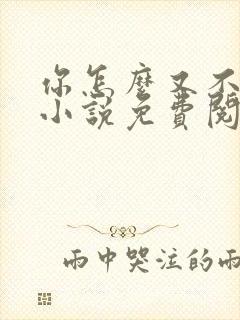 你怎麼又不
小說免費閱
雨中哭泣的雨